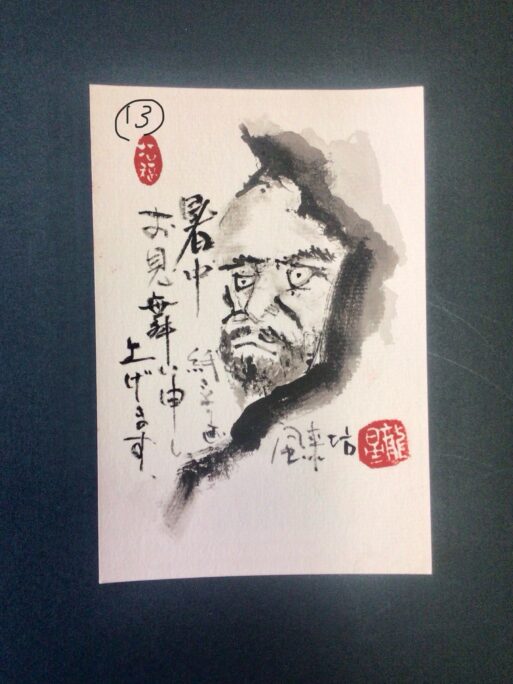 13
招福
暑中
お見舞い申し
上げます、
風来坊
龍星